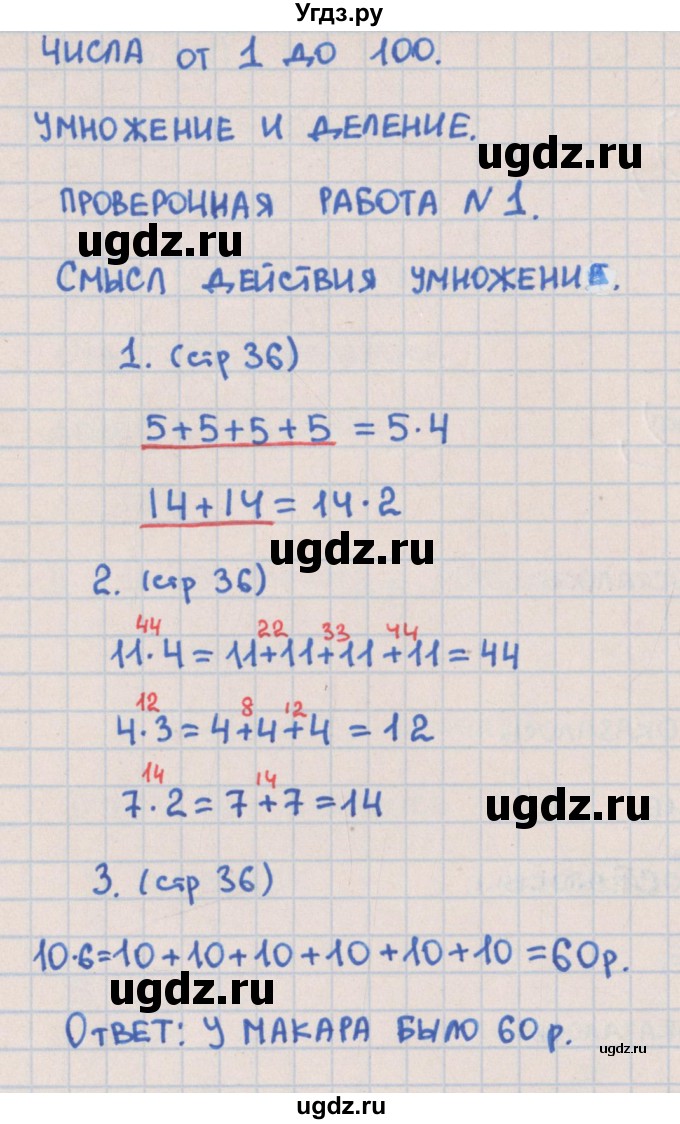 Угдз.ру
ЧИСЛА ОТ 1 ДО 100.
УМНОЖЕНИЕ И ДЕЛЕНИЕ.
ugdz.ru
ПРОВЕРОЧНАЯ РАБОТА N 1.
ugdz.ru
СМЫСЛ ДЕЙСТВИЯ УМНОЖЕНИЕ.
1. (стр 36)
5+5+5+5 = 5·4
14+14 = 14·2
ugdz.ru
2. (стр 36)
44 22 33 44
11·4 = 11+11+11+11 = 44
12 8 12
4·3 = 4+4+4 = 12
14 14
7·2 = 7+7 = 14
ugdz.ru
3. (стр 36)
10·6=10+10+10+10+10+10 = 60р.
ugdz.ru
ОТВЕТ: У МАКАРА БЫЛО 60 р.
ugdz.ru
ugdz.ru